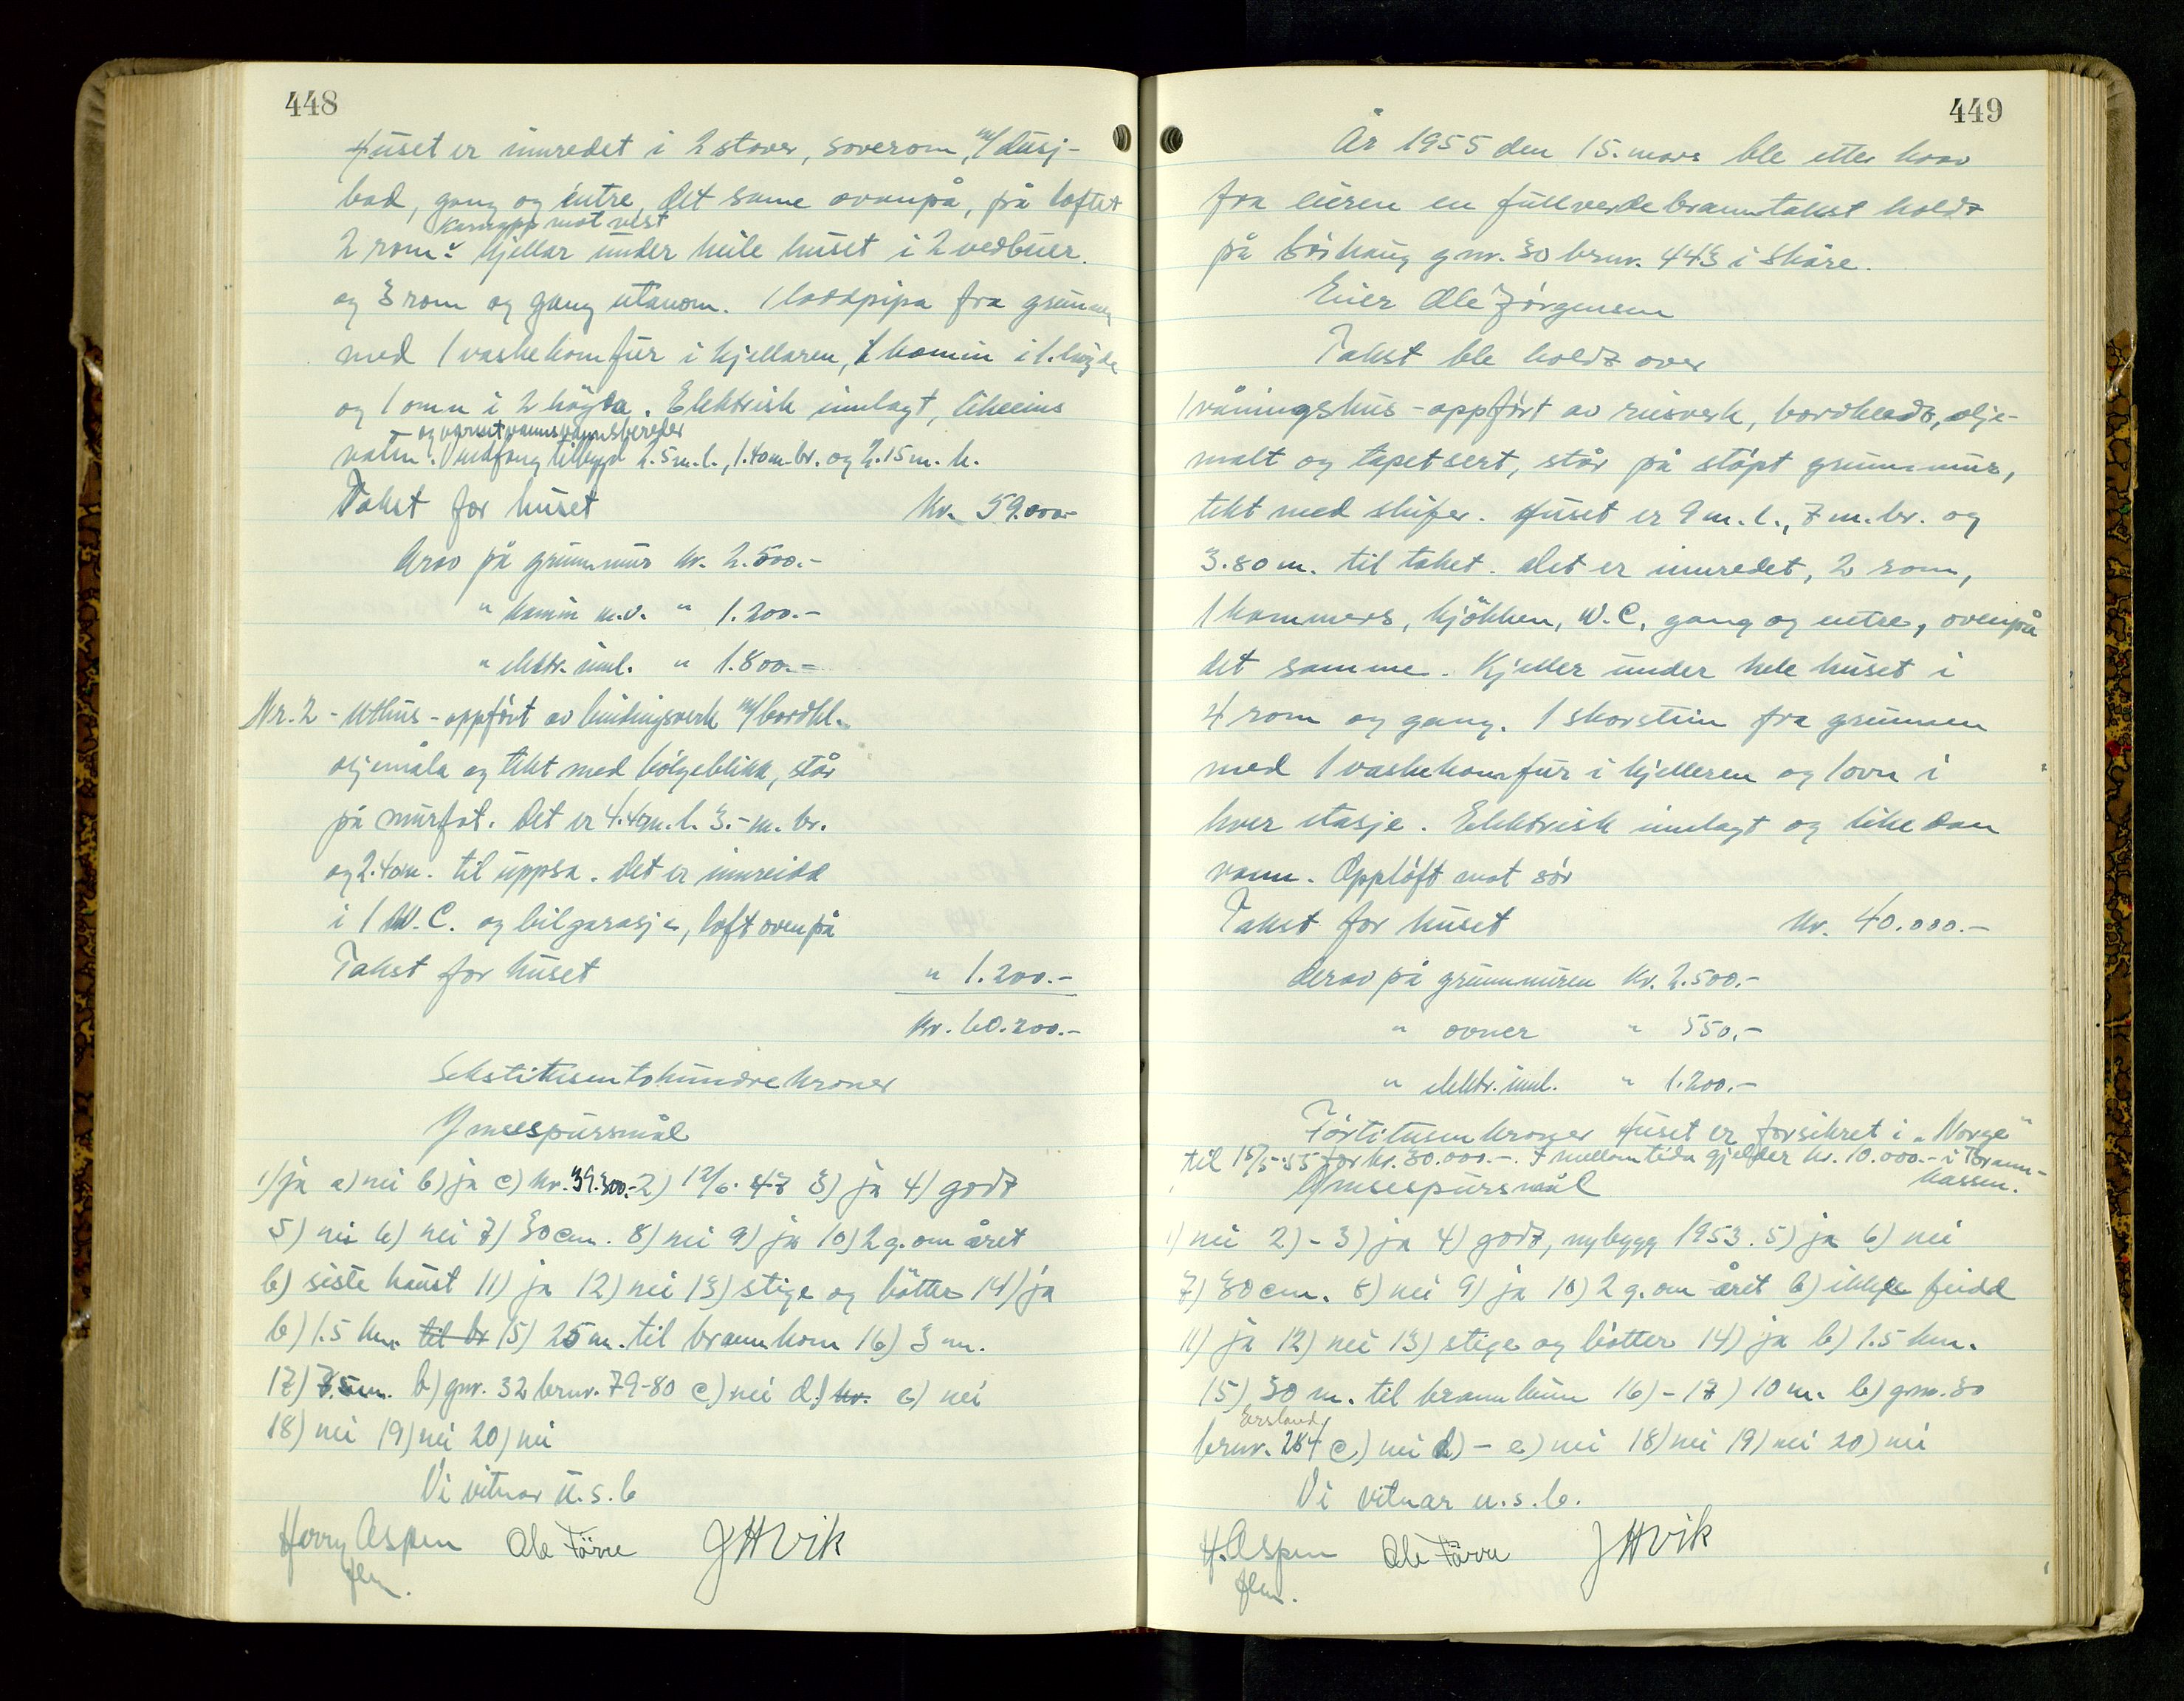 448
Huset er innredet i 2 stover, soverom, m/dusj-
bad, gang og entre, det same ovanpå, på loftet
karnapp mot vest
2 rom. Kjellar under heile huset i 2 vedbuer.
og 3 rom og gang utanom. 1 loddpipa fra grunnen
med 1 vaskekomfur i kjellaren, 1 kamin i 1. høgda
og 1 omn i 2 högda. Elektrisk innlagt, likeeins
og varmtvannsbereder
vatn. Vindfang tilbygd 2.5 m. l., 1.40 m. br. og 2.15 m. h.
Takst for huset kr. 59.000.-
Arav på grunnmur kr. 2.500.-
" kamin m.v. " 1.200.-
" elektr. innl. " 1.800.-
Nr. 2 - Uthus - oppført av bindingsverk m/bordkl.
oljemåla og tekt med bölgeblikk, står
på murfot. Det er 4.40 m. l. 3.- m. br.
og 2.40 m. til uppsa. Det er innreidd
i 1 W.C. og bilgarasje, loft ovenpå
Takst for huset " 1.200.-
Kr. 60.200.-
Sekstitusentohundrekroner
Ymsespursmål
1) ja a) nei b) ja c) kr. 39.300.- 2) 12/6. 47 3) ja 4) godt
5) nei 6) nei 7) 30 cm. 8) nei 9) ja 10) 2 g. om året
b) siste haust 11) ja 12) nei 13) stige og bötter 14) ja
b) 1.5 km. til br 15) 25 m. til brannkum 16) 3 m.
17) 7.5 m. b) gnr. 32 brnr. 79-80 c) nei d) kr. e) nei
18) nei 19) nei 20) nei
Vi vitnar u.s.b
Harry Aspen Ole Förre J H Vik
flm.
449
År 1955 den 15. mars ble etter krav
fra eieren en fullverdebranntakst holdt
på Sörhaug gnr. 30 brnr. 443 i Skåre.
Eier Ole Jörgensen
Takst ble holdt over
1 våningshus - oppfört av reisverk, bordkledt, olje-
malt og tapetsert, står på stöpt grunnmur,
tekt med skifer. Huset er 9 m. l., 7 m. br. og
3.80 m. til taket. Det er innredet, 2 rom,
1 kammers, kjökken, W.C, gang og entre, ovenpå
det samme. Kjeller under hele huset i
4 rom og gang. 1 skorstein fra grunnen
med 1 vaskekomfur i kjelleren og 1 ovn i
hver etasje. Elektrisk innlagt og likedan
vann. Opplöft mot sör
Takst for huset kr. 40.000.-
derav på grunnmuren kr. 2.500.-
" ovner " 550.-
" elektr. innl. " 1.200.-
Förtitusenkroner Huset er forsikret i "Norge"
til 15/5-55 for kr. 30.000.-. I mellomtida gjelder kr. 10.000.- i Brann-
kassen.
Ymsespursmål
1) nei 2) - 3) ja 4) godt, nybygg 1953. 5) ja 6) nei
7) 30 cm. 8) nei 9) ja 10) 2 g. om året b) ikkje feidd
11) ja 12) nei 13) stige og bötter 14) ja b) 1.5 km.
15) 30 m. til brannkum 16) - 17) 10 m. b) gnr. 30
Ersland
brnr. 284 c) nei d) - e) nei 18) nei 19) nei 20) nei
Vi vitnar u.s.b.
H. Aspen Ole Förre J H Vik
flm.